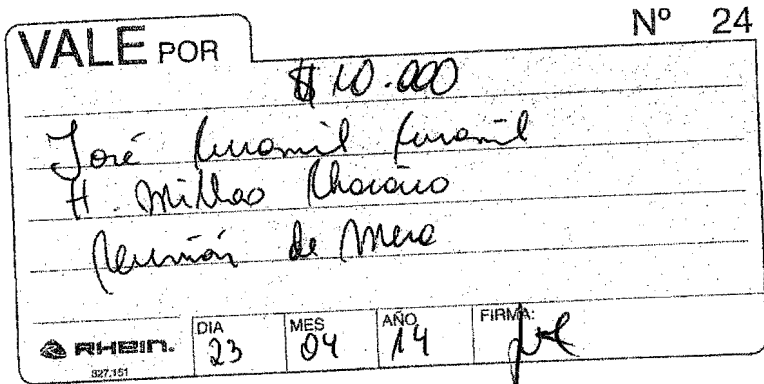 Nº 24
VALE POR
$ 10.000
José Curamil Curamil
H. Millao
Reunión de Mesa
RHEIN.
327.151
DIA 23 MES 04 AÑO 14 FIRMA: